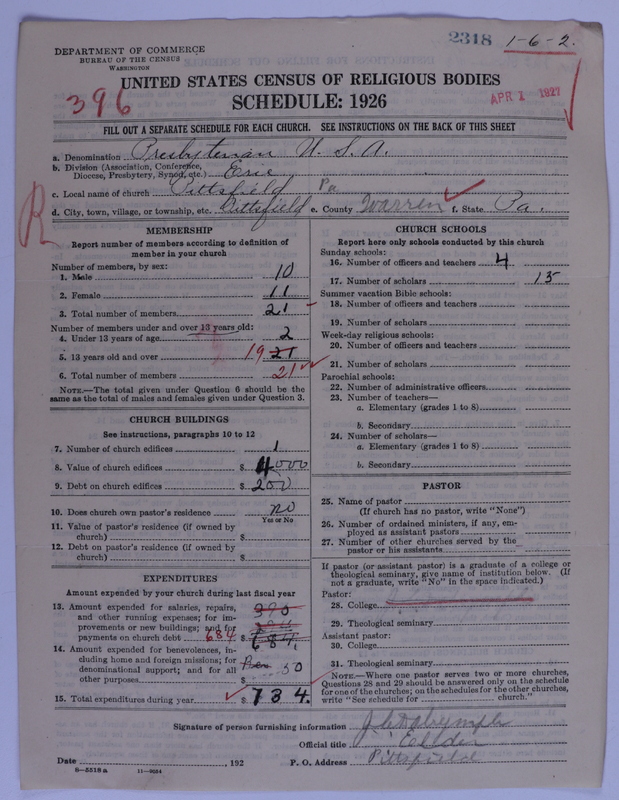 2318 1-6-2.
DEPARTMENT OF COMMERCE
BUREAU OF THE CENSUS
WASHINGTON
UNITED STATES CENSUS OF RELIGIOUS BODIES
396
SCHEDULE: 1926
APR 1 1927
FILL OUT A SEPARATE SCHEDULE FOR EACH CHURCH. SEE INSTRUCTIONS ON THE BACK OF THIS SHEET
a. Denomination Presbyterian U. S. A.
b. Division (Association, Conference, Diocese, Presbytery, Synod, etc.) Erie
c. Local name of church Pittsfield Pa
d. City, town, village, or township, etc. Pittsfield e. County Warren f. State Pa.
R
MEMBERSHIP
Report number of members according to definition of
member in your church
Number of members, by sex:
1. Male 10
2. Female 11
3. Total number of members 21
Number of members under and over 13 years old:
4. Under 13 years of age 2
5. 13 years old and over 19 21
6. Total number of members 21
NOTE.—The total given under Question 6 should be
same as the total of males and females given under Question 3.
CHURCH BUILDINGS
See instructions, paragraphs 10 to 12
7. Number of church edifices 1
8. Value of church edifices $ 4000
9. Debt on church edifices $ 200
10. Does church own pastor's residence no
Yes or No
11. Value of pastor's residence (if owned by
church) $
12. Debt on pastor's residence (if owned by
church) $
EXPENDITURES
Amount expended by your church during last fiscal year
13. Amount expended for salaries, repairs,
and other running expenses; for im-
provements or new buildings; and for
payments on church debt 684 $ 684.
14. Amount expended for benevolences, in-
cluding home and foreign missions; for
denominational support; and for all
other purposes 50
15. Total expenditures during year $ 734.
CHURCH SCHOOLS
Report here only schools conducted by this church
Sunday schools:
16. Number of officers and teachers 4
17. Number of scholars 15
Summer vacation Bible schools:
18. Number of officers and teachers
19. Number of scholars
Week-day religious schools:
20. Number of officers and teachers
21. Number of scholars
Parochial schools:
22. Number of administrative officers
23. Number of teachers—
a. Elementary (grades 1 to 8)
b. Secondary
24. Number of scholars—
a. Elementary (grades 1 to 8)
b. Secondary
PASTOR
25. Name of pastor
(If church has no pastor, write "None")
26. Number of ordained ministers, if any, em-
ployed as assistant pastors
27. Number of other churches served by the
pastor or his assistants
If pastor (or assistant pastor) is a graduate of a college or
theological seminary, give name of institution below. (If
not a graduate, write "No" in the space indicated.)
Pastor:
28. College
29. Theological seminary
Assistant pastor:
30. College
31. Theological seminary
NOTE.—Where one pastor serves two or more churches,
Questions 28 and 29 should be answered only on the schedule
for one of the churches; on the schedules for the other churches,
write "See schedule for church."
Signature of person furnishing information Dalrymple
Official title Elder
Date , 192 P. O. Address Pittsfield
8—5518 a 11—9024